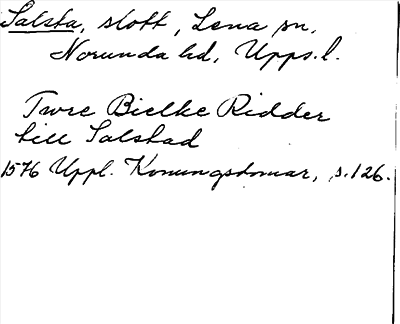 Salsta, slott, Lena sn,
Norunda hd, Upps. l.
Twre Bielke Ridder
till Salstad
1576 Uppl. Konungsdomar, s. 126.